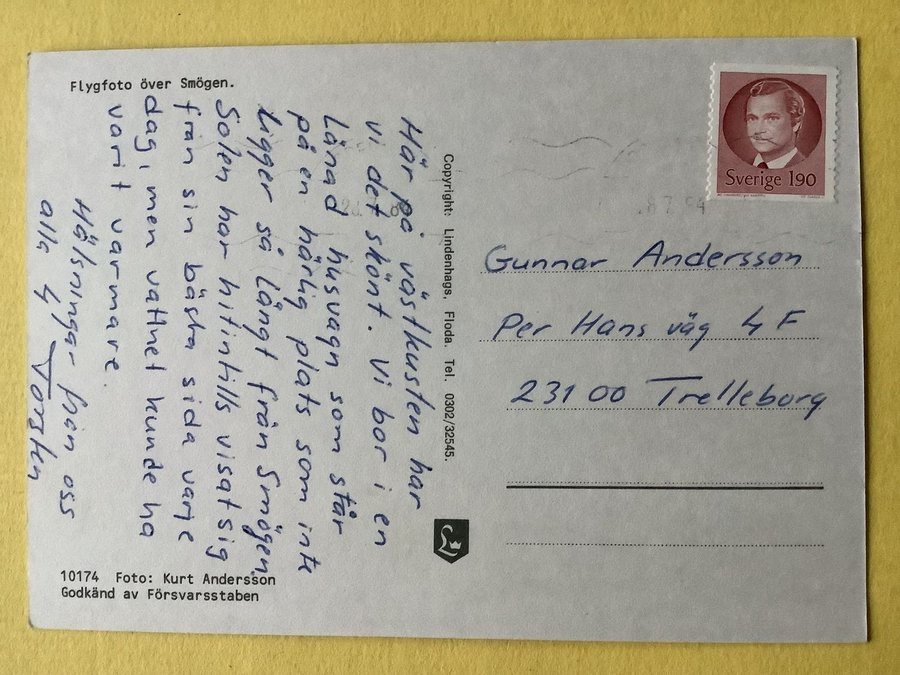 Flygfoto över Smögen.
Här på västkusten har
vi det skönt. Vi bor i en
lånad husvagn som står
på en härlig plats som inte
ligger så långt från Smögen.
Solen har hitintills visat sig
från sin bästa sida varje
dag, men vattnet kunde ha
varit varmare.
Hälsningar från oss
alla 4
Torsten
10174 Foto: Kurt Andersson
Godkänd av Försvarsstaben
Copyright: Lindenhags, Floda. Tel. 0302/32545.
Sverige 190
Gunnar Andersson
Per Hans väg 4 F
231 00 Trelleborg